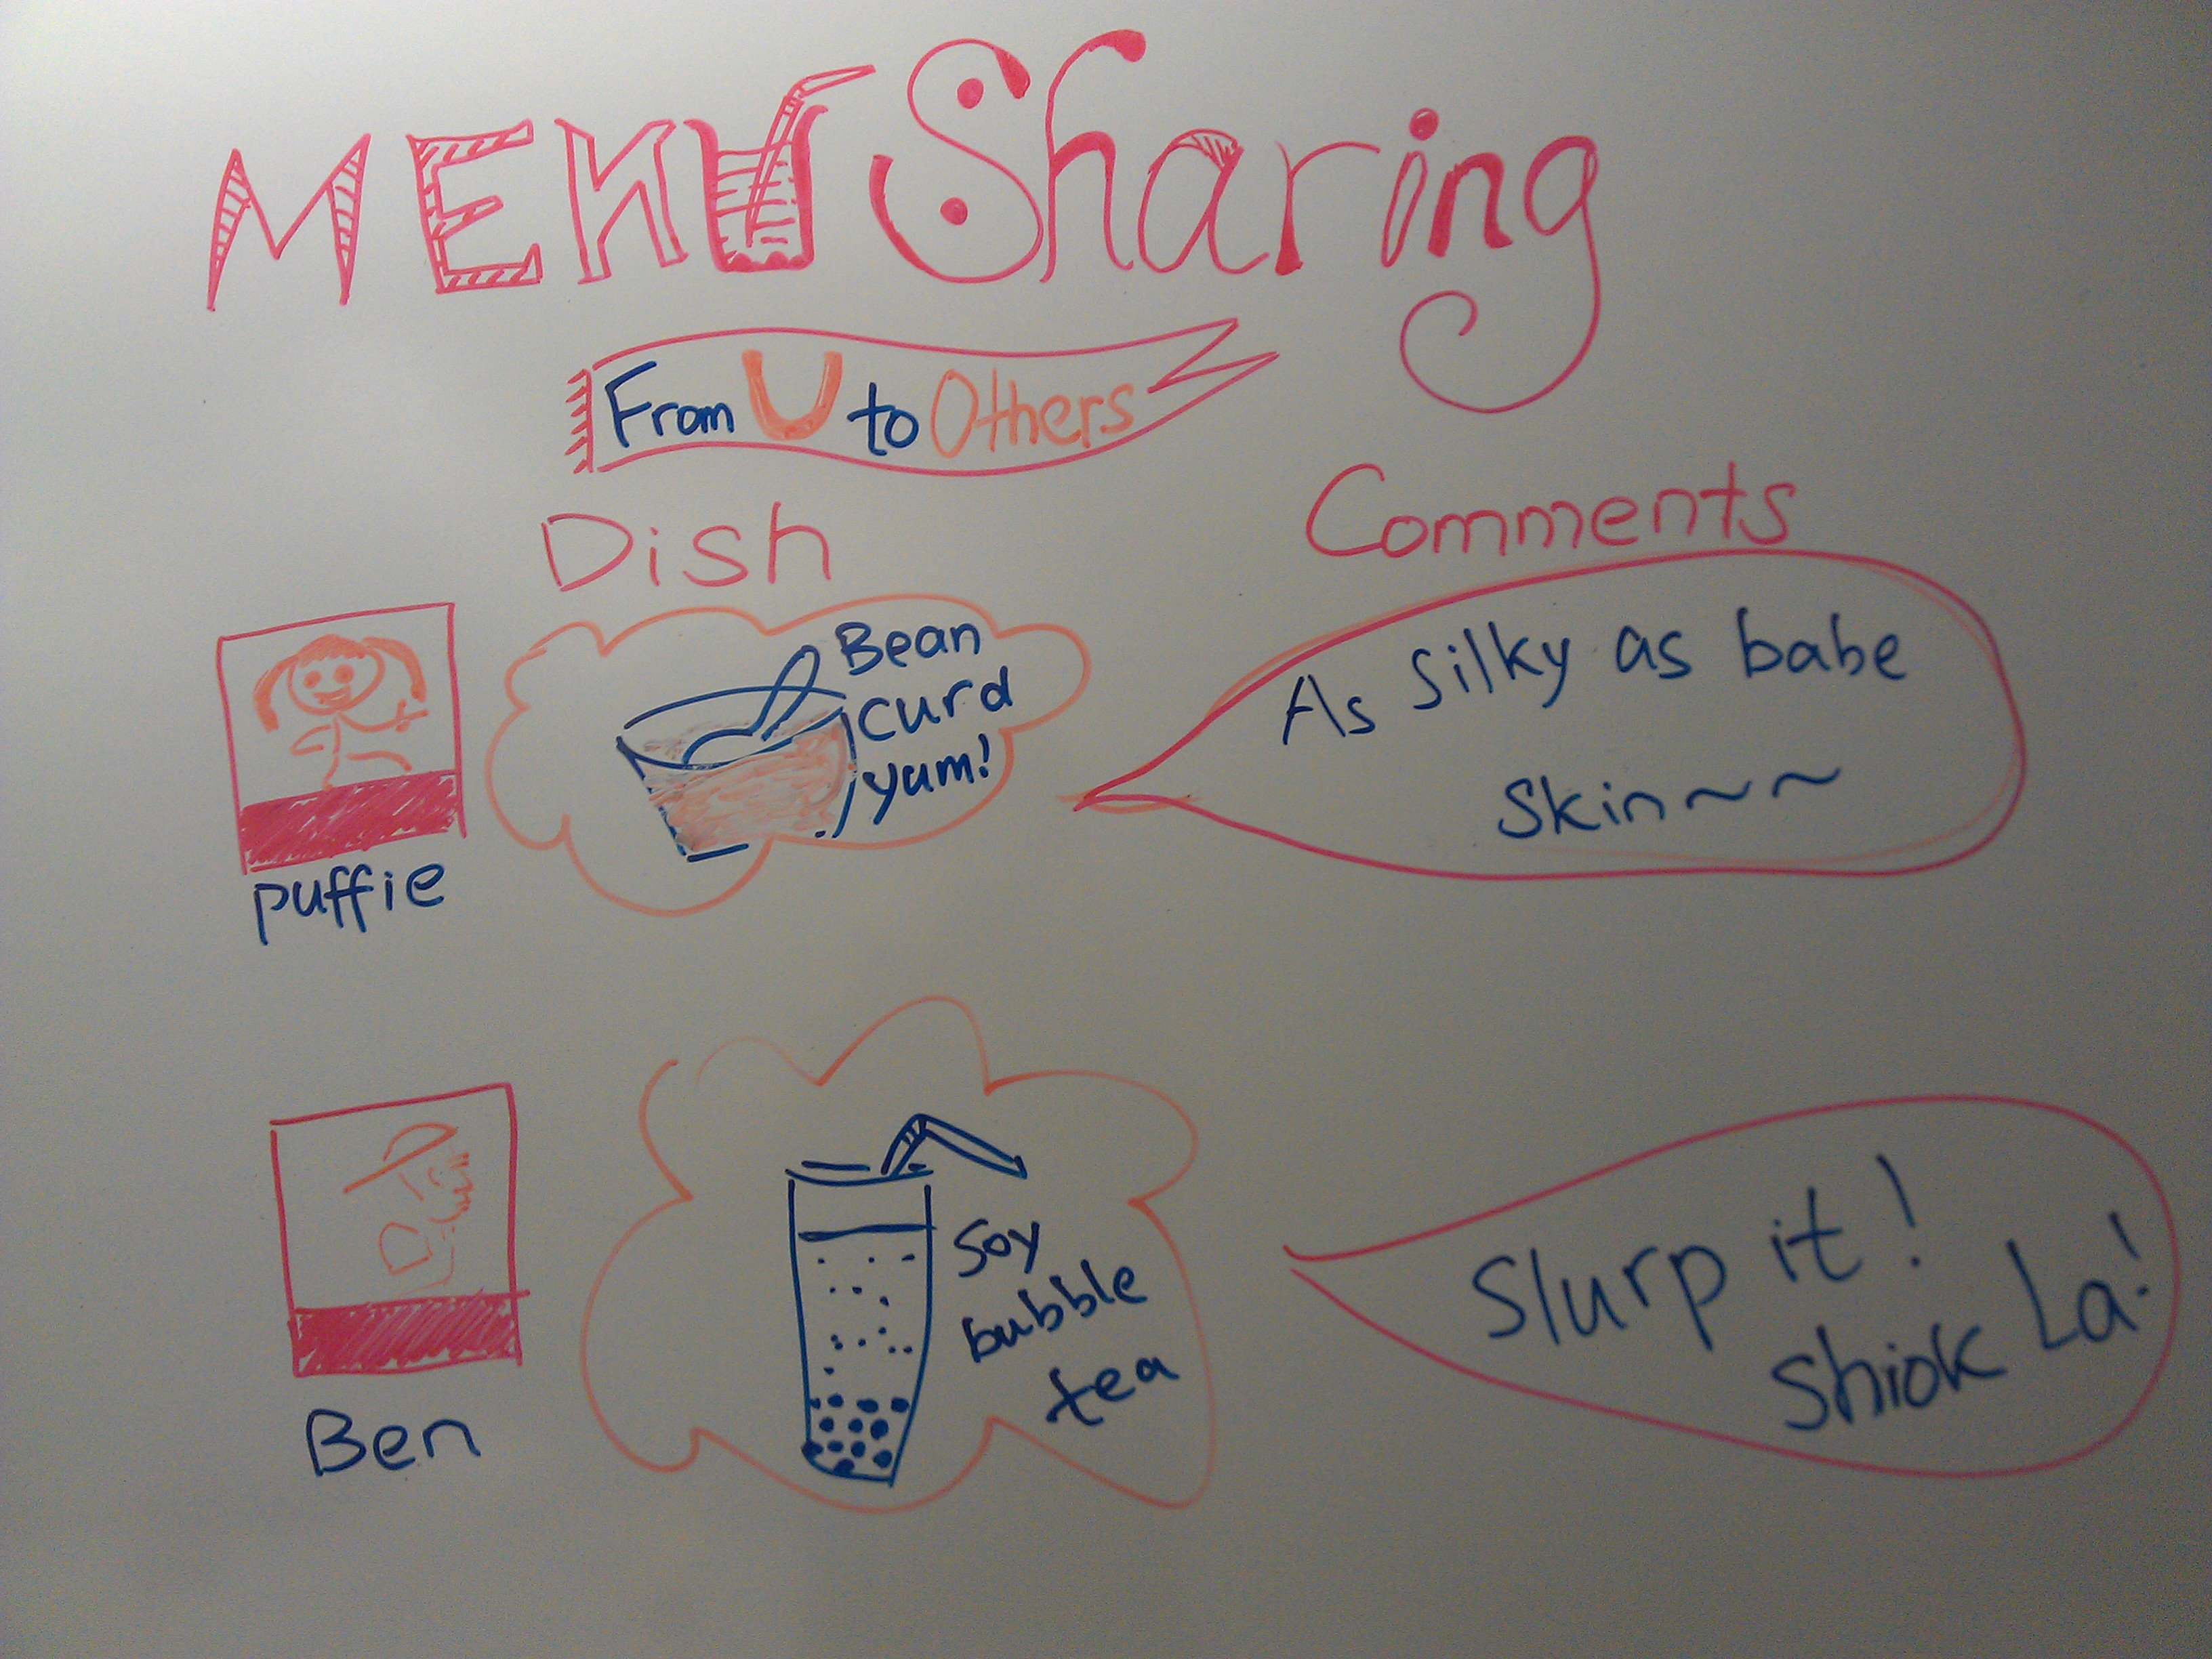 MENU Sharing
From U to Others
Dish
Comments
Bean
curd
yum!
As silky as babe
skin~~
puffie
Soy
bubble
tea
Slurp it!
Shiok La!
Ben